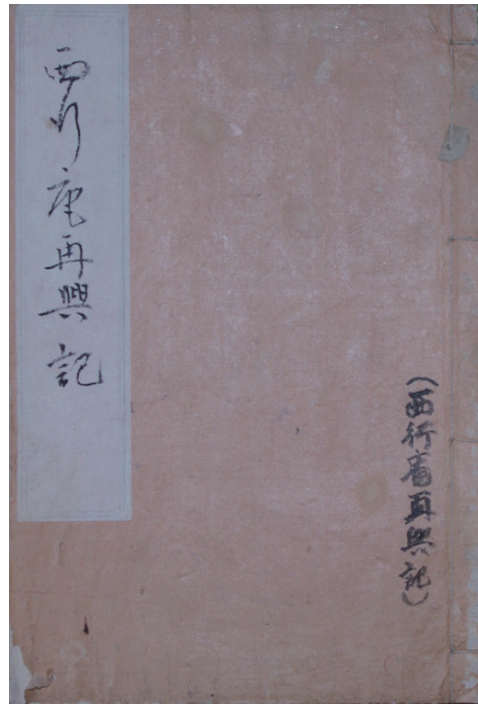 西行庵再興記
(西行庵再興記)